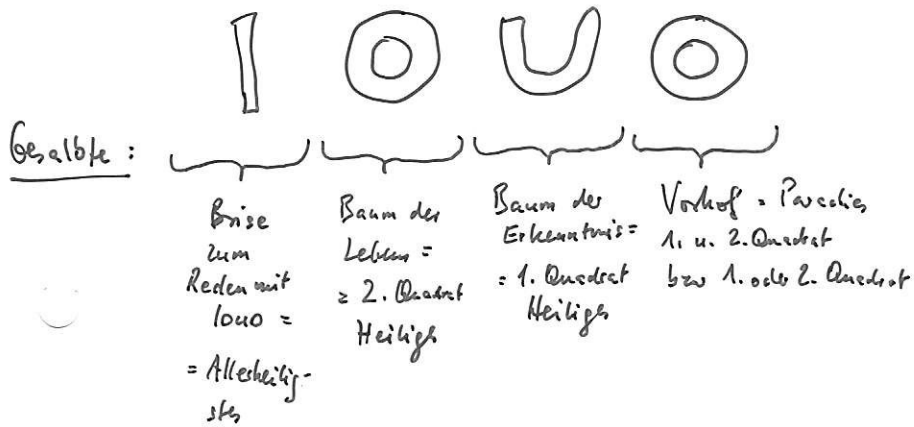 I O U O
Gesalbte:
Brise
zum
Reden mit
IOUO =
= Allerheilig-
stes
Baum des
Lebens =
= 2. Quadrat
Heiliges
Baum der
Erkenntnis =
= 1. Quadrat
Heiliges
Vorhof = Paradies
1. u. 2. Quadrat
bzw 1. oder 2. Quadrat